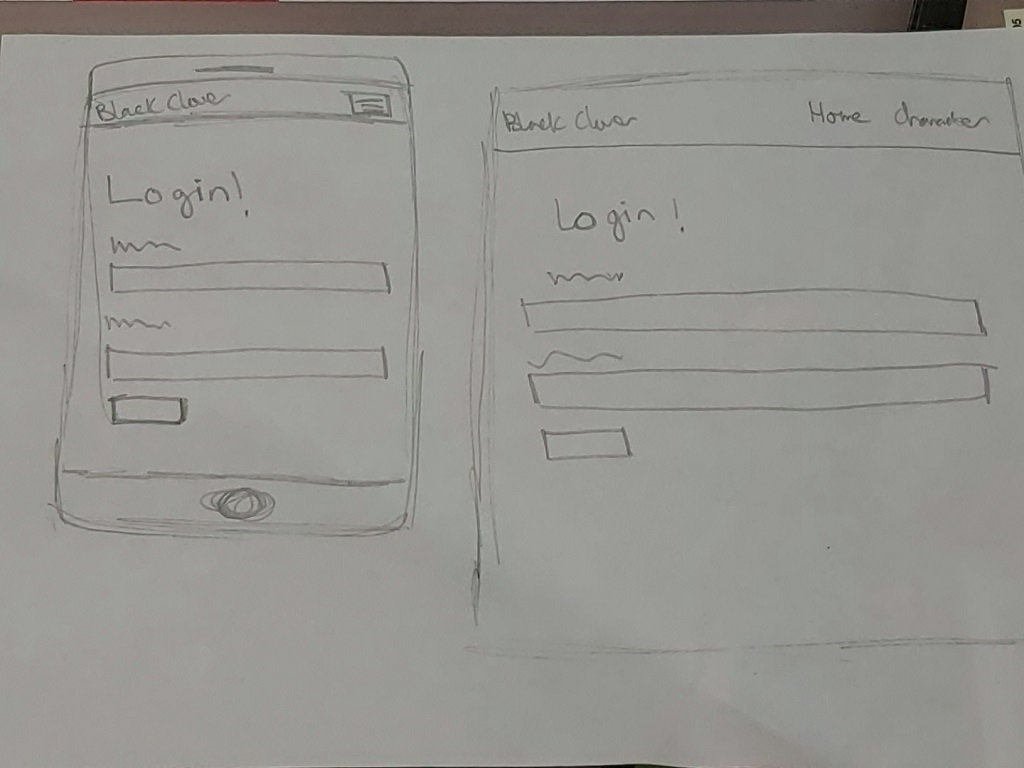 Black Clover
Login!
Black Clover
Home Character
Login!